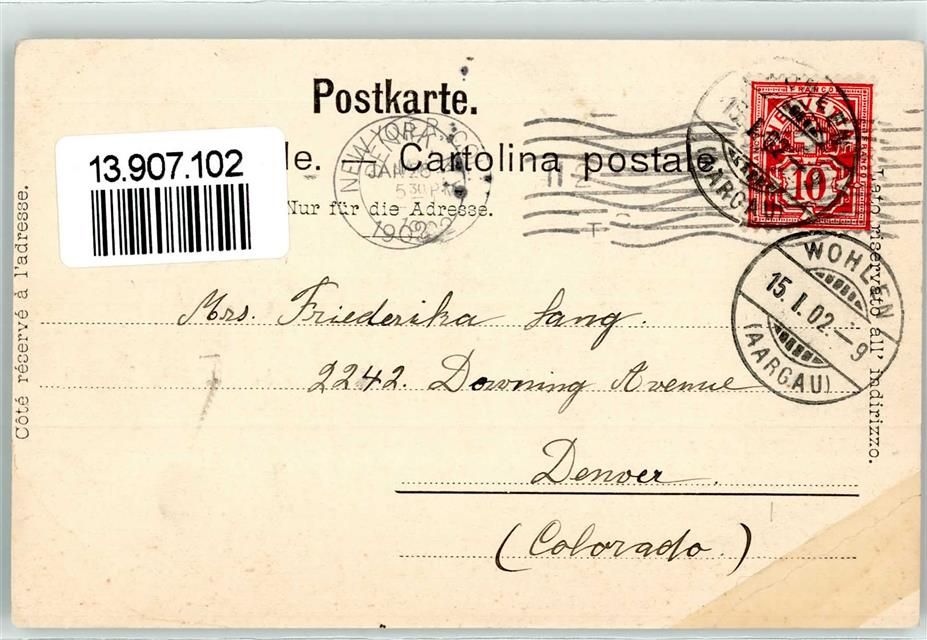 Postkarte.
13.907.102
le. — Cartolina postale
Nur für die Adresse.
Côté réservé à l'adresse.
Lato riservato all' indirizzo.
NEW YORK
JAN 26
5 30 PM
1902
FRANCO
HELVETIA
10
(AARGAU)
WOHLEN
15.I.02.–9
(AARGAU)
Mrs. Friederika Lang.
2242. Downing Avenue
Denver.
(Colorado.)